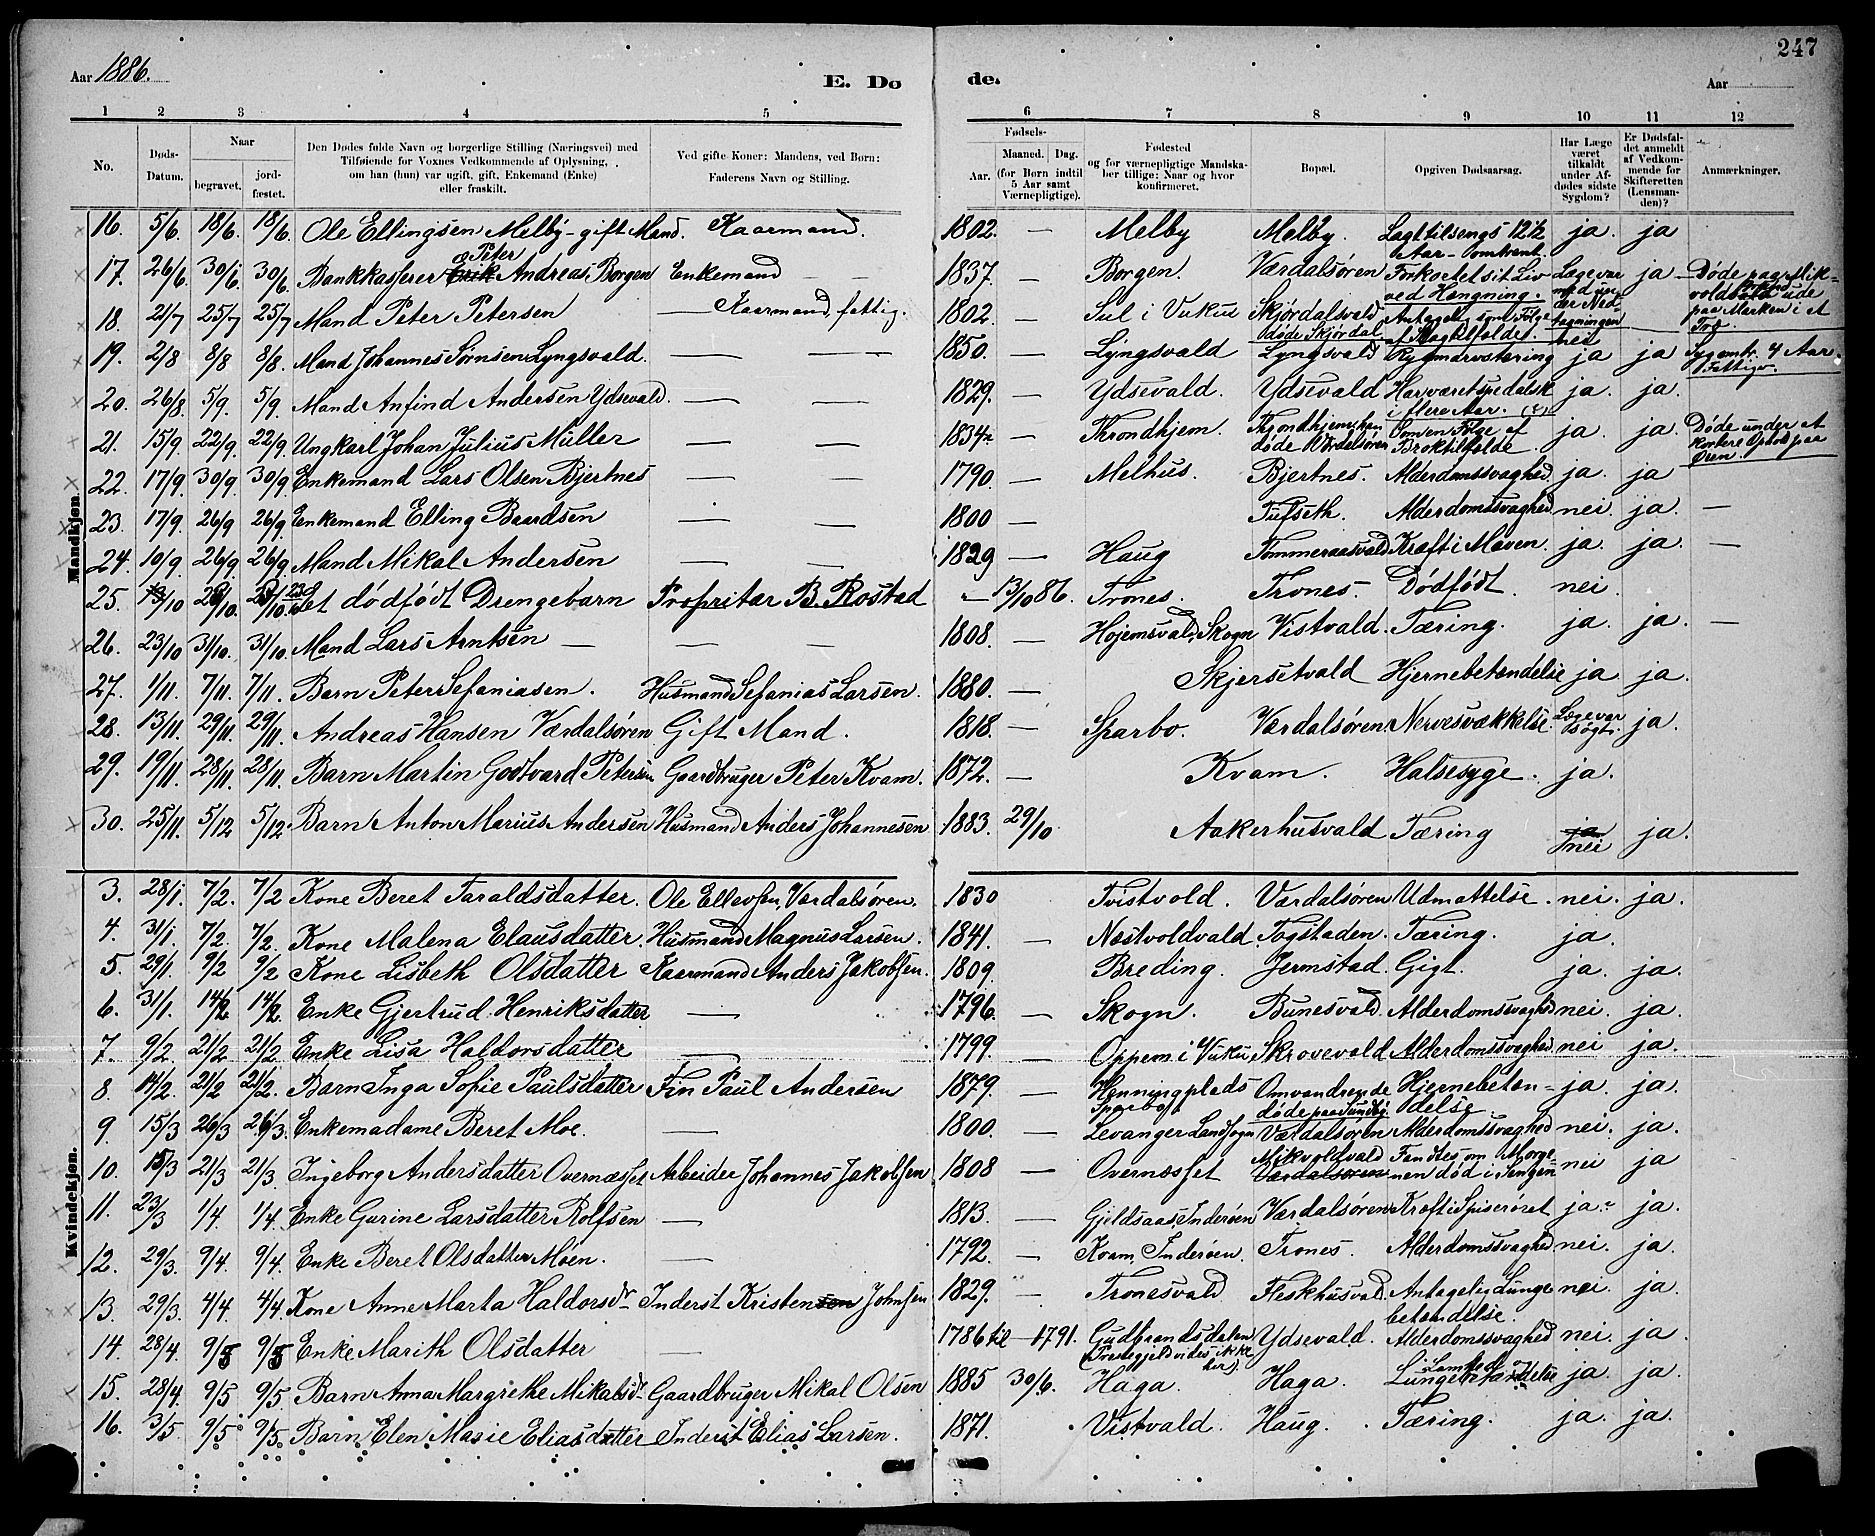 247
Aar 1886.
E. Dø de.
Aar
1 2 3 4 5 6 7 8 9 10 11 12
No.
Døds-Datum.
Naar
begravet.
jord-fæstet.
Den Dødes fulde Navn og borgerlige Stilling (Næringsvei) med Tilføiende for Voxnes Vedkommende af Oplysning, om han (hun) var ugift, gift, Enkemand (Enke) eller fraskilt.
Ved gifte Koner: Mandens, ved Børn: Faderens Navn og Stilling.
Fødsels-
Aar.
Maaned. Dag.
(for Børn indtil 5 Aar samt Værnepligtige).
Fødested og for værnepligtige Mandskaber tillige: Naar og hvor konfirmeret.
Bopæl.
Opgiven Dødsaarsag.
Har Læge været tilkaldt under Afdødes sidste Sygdom?
Er Dødsfaldet anmeldt af Vedkommende for Skifteretten (Lensmanden)?
Anmærkninger.
Mandkjøn.
16. 5/6. 18/6. 18/6. Ole Ellingsen Melby - gift Mand. Kaarmand. 1802. — Melby Melby. Lagt tilsengs 12 1/2 Aar - omtrent. ja. ja
17. 26/6 30/6. 30/6. Bankkasserer Erik Peter Andreas Borgen Enkemand — — 1837. — Borgen. Værdalsøren Forkortet sit Liv ved Hængning. Læge var med under Nedtagningen ja — Døde paa Mikvoldvald ude paa Marken i et Træ.
18. 21/7 25/7 25/7 Mand Peter Petersen — Kaarmand, fattig. 1802. — Sul i Vuku Skjørdalsvald døde Skjørdal Antagelig som Følge af Slagtilfælde. nei
19. 2/8 8/8 8/8. Mand Johannes Sørnsen Lyngsvald. — — 1850. — Lyngsvald Lyngsvald Rygmarvstæring ja ja Sygomtr. 4 Aar. Fattigv.
20. 26/8. 5/9. 5/9. Mand Anfind Andersen Ydsevald. — — 1829. — Ydsevald. Ydsevald Har været spedalsk i flere Aar. ja. ja.
21. 15/9 22/9. 22/9. Ungkarl Johan Julius Müller — — 1834 — Throndhjem. Throndhjem, han døde Værdalsøren Som en Følge af Broktilfælde. ja. ja. Døde under et kortere Ophold paa Øren.
22. 17/9. 30/9. 30/9. Enkemand Lars Olsen Bjertnes — — 1790. — Melhus. Bjertnes. Alderdomssvaghed ja. ja
23. 17/9 26/9 26/9. Enkemand Elling Baardsen — — 1800 — Tufseth. Alderdomssvaghed nei. ja. —
24. 10/9. 26/9 26/9 Mand Mikal Andersen — — 1829 — Haug Tømmeraasvald Kræft i Maven. ja. ja. —
25. 13/10 23/10. 23/10. Et dødfødt Drengebarn Propritær B. Rostad — 13/10 86. Trones. Trones. Dødfødt. nei.
26. 23/10 31/10. 31/10. Mand Lars Arntsen — — — 1808. — Højemsvald, Skogn Vistvald. Tæring. ja. ja. —
27. 1/11. 7/11. 7/11. Barn Peter Sefaniasen. Husmand Sefanias Larsen. 1880. — Skjersetvald Hjernebetændelse ja ja.
28. 13/11. 29/11. 29/11. Andreas Hansen Værdalsøren Gift Mand. 1818. — Sparbo. Værdalsøren Nervesvækkelse. Læge var søgt. ja.
29. 19/11. 28/11. 28/11. Barn Martin Godtvard Petersen Gaardbruger Peter Kvam. 1872. — Kvam. Halsesyge. ja.
30. 25/11. 5/12 5/12. Barn Anton Marius Andersen Husmand Anders Johannesen 1883. 29/10 Aakerhusvald Tæring ja nei ja.
Kvindekjøn.
3. 28/1. 7/2. 7/2 Kone Beret Taraldsdatter. Ole Ellevsen, Værdalsøren. 1830 Tvistvold. Værdalsøren Udmattelse. nei. ja.
4. 31/1. 7/2. 7/2. Kone Malena Elausdatter. Husmand Magnus Larsen. 1841. — Næstvoldvald Togstaden. Tæring. ja.
5. 29/1. 9/2 9/2 Kone Lisbeth Olsdatter Kaarmand Anders Jakobsen. 1809. — Breding. Jermstad. Gigt. ja. ja.
6. 31/1. 14/2 14/2. Enke Gjertrud Henriksdatter — 1796. — Skogn. Bunesvald. Alderdomssvaghed nei. ja.
7. 9/2. 21/2 21/2. Enke Lisa Haldorsdatter — 1799. — Oppem i Vuku Skrovevald Alderdomssvaghed nei ja.
8. 14/2. 21/2 21/2. Barn Inga Sofie Paulsdatter Fin Paul Andersen 1879. — Henningplads Sparbo Omvandrende døde paa Sundby Hjernebetændelse ja. ja.
9. 15/3 26/3 26/3. Enkemadame Beret Moe. — 1800. — Levanger Landsogn Værdalsøren Alderdomssvaghed nei. ja.
10. 15/3 21/3 21/3. Ingeborg Andersdatter Overnæsset Arbeider Johannes Jakobsen 1808 — Overnæsset Mikvoldvald Værdalsøren Fandtes om Morgenen død i Sengen nei ja
11. 23/3 1/4. 1/4. Enke Gurine Larsdatter Rolfsen — 1813. — Gjeldsaas, Inderøen Værdalsøren Kræft i Spiserøret ja. ja.
12. 29/3. 9/4. 9/4. Enke Beret Olsdatter Moen. — 1792. — Kvam, Inderøen. Trones. Alderdomssvaghed nei. ja.
13. 29/3. 4/4. 4/4. Kone Anne Marta Haldorsdr Inderst Kristensen Johnsen 1829. — Tronesvald Fleskhusvald. Antagelig Lungebetændelse. nei. ja.
14. 28/4. 9/5 9/5 Enke Marith Olsdatter — 1786 til — 1791. Gudbrandsdalen (Præstegjeld vides ikke her). Ydsevald. Alderdomssvaghed nei. ja.
15. 28/4 9/5 9/5. Barn Anna Margrethe Mikalsdr. Gaardbruger Mikal Olsen 1885 30/6. Haga. Haga. Lungebetændelse ja ja.
16. 3/5. 9/5 9/5. Barn Elen Marie Eliasdatter Inderst Elias Larsen. 1871. Vistvald. Haug. Tæring. ja. ja.